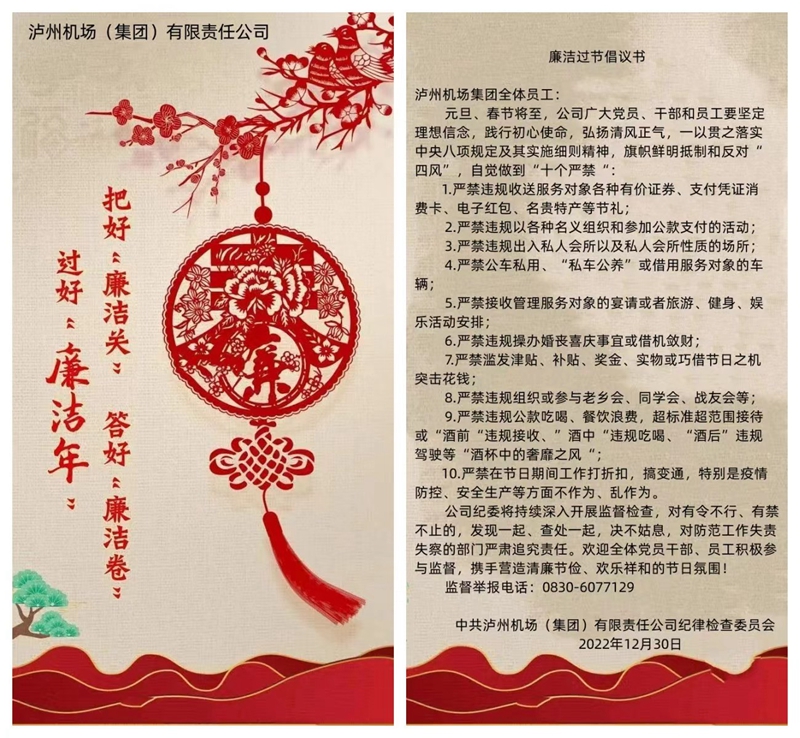 泸州机场（集团）有限责任公司
把好“廉洁关” 答好“廉洁卷”
过好“廉洁年”
廉洁过节倡议书
泸州机场集团全体员工：
元旦、春节将至，公司广大党员、干部和员工要坚定
理想信念，践行初心使命，弘扬清风正气，一以贯之落实
中央八项规定及其实施细则精神，旗帜鲜明抵制和反对“
四风”，自觉做到“十个严禁“：
1.严禁违规收送服务对象各种有价证券、支付凭证消
费卡、电子红包、名贵特产等节礼；
2.严禁违规以各种名义组织和参加公款支付的活动；
3.严禁违规出入私人会所以及私人会所性质的场所；
4.严禁公车私用、“私车公养”或借用服务对象的车
辆；
5.严禁接收管理服务对象的宴请或者旅游、健身、娱
乐活动安排；
6.严禁违规操办婚丧喜庆事宜或借机敛财；
7.严禁滥发津贴、补贴、奖金、实物或巧借节日之机
突击花钱；
8.严禁违规组织或参与老乡会、同学会、战友会等；
9.严禁违规公款吃喝、餐饮浪费，超标准超范围接待
或“酒前“违规接收、”酒中“违规吃喝、“酒后”违规
驾驶等“酒杯中的奢靡之风“；
10.严禁在节日期间工作打折扣，搞变通，特别是疫情
防控、安全生产等方面不作为、乱作为。
公司纪委将持续深入开展监督检查，对有令不行、有禁
不止的，发现一起、查处一起，决不姑息，对防范工作失责
失察的部门严肃追究责任。欢迎全体党员干部、员工积极参
与监督，携手营造清廉节俭、欢乐祥和的节日氛围！
监督举报电话：0830-6077129
中共泸州机场（集团）有限责任公司纪律检查委员会
2022年12月30日